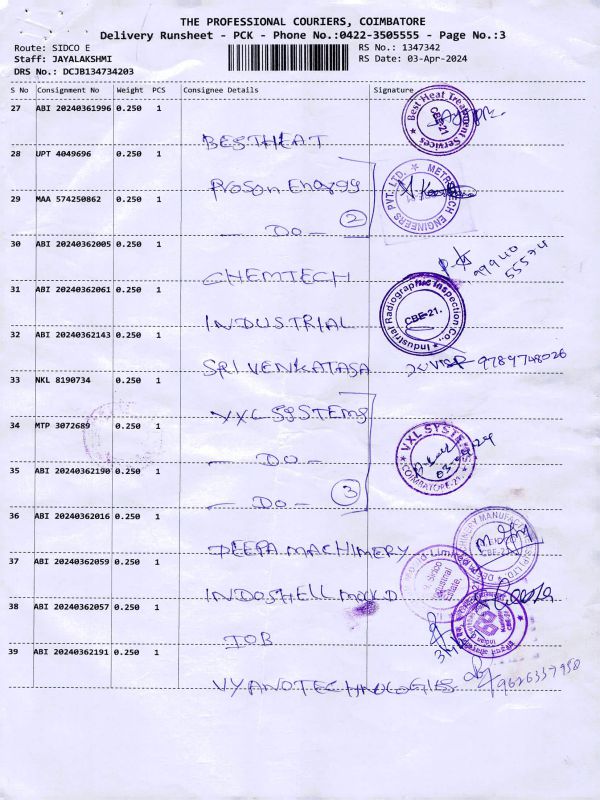 THE PROFESSIONAL COURIERS, COIMBATORE
Delivery Runsheet - PCK - Phone No.:0422-3505555 - Page No.:3
Route: SIDCO E RS No.: 1347342
Staff: JAYALAKSHMI RS Date: 03-Apr-2024
DRS No.: DCJB134734203
S No Consignment No Weight PCS Consignee Details Signature
27 ABI 20240361996 0.250 1
BESTHEAT
Best Heat Treatment Services
CBE-21
28 UPT 4049696 0.250 1
Proson Energy
METROTECH ENGINEERS PVT. LTD.
29 MAA 574250862 0.250 1
- DO - 2
30 ABI 20240362005 0.250 1
CHEMTECH
99940
55574
31 ABI 20240362061 0.250 1
INDUSTRIAL
Industrial Radiographic Inspection Co.,
CBE-21.
32 ABI 20240362143 0.250 1
SRI VENKATASA
9789748026
33 NKL 8190734 0.250 1
VXL SYSTEMS
34 MTP 3072689 0.250 1
- DO -
VXL SYSTEMS
COIMBATORE-21.
35 ABI 20240362190 0.250 1
- DO - 3
36 ABI 20240362016 0.250 1
DEEPA MACHINERY
37 ABI 20240362059 0.250 1
INDOSHELL MOULD
38 ABI 20240362057 0.250 1
IOB
39 ABI 20240362191 0.250 1
VYANOTECHNOLOGIES
9626557958